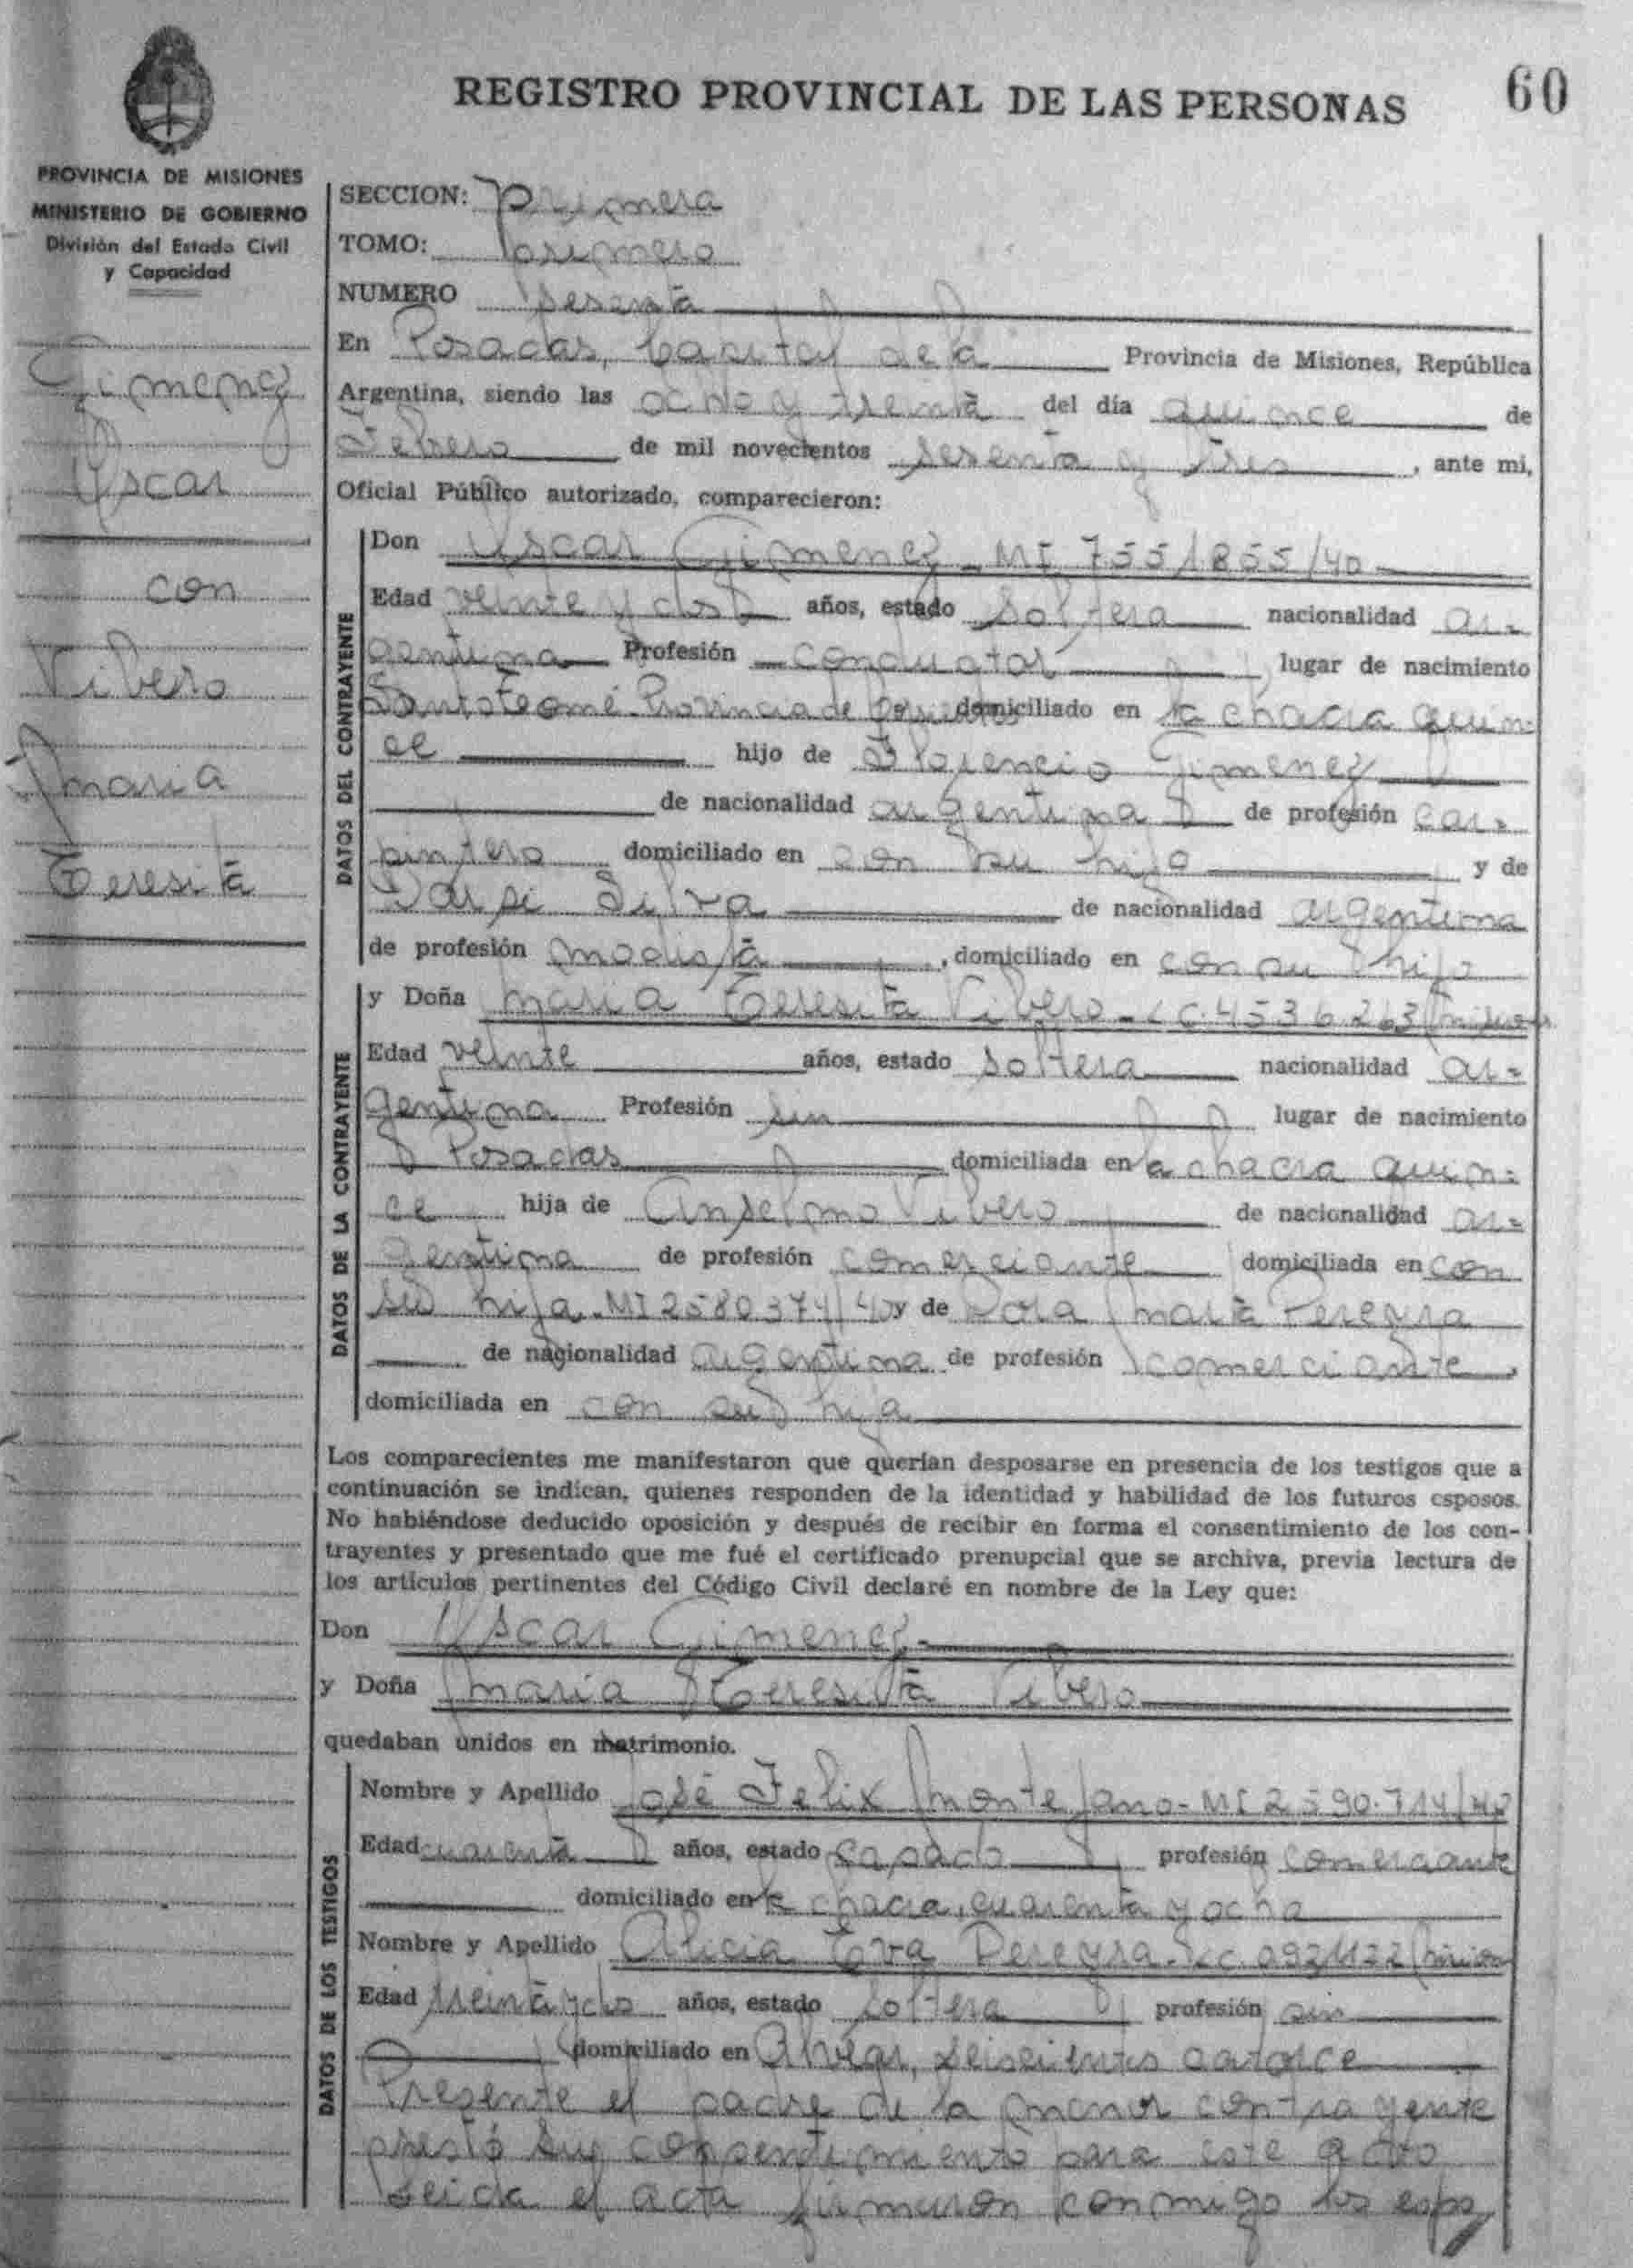 REGISTRO PROVINCIAL DE LAS PERSONAS
60
PROVINCIA DE MISIONES
MINISTERIO DE GOBIERNO
División del Estado Civil
y Capacidad
Gimenez
Oscar
con
Vibero
Maria
Teresita
SECCION: primera
TOMO: primero
NUMERO sesenta
En Posadas, Capital de la Provincia de Misiones, República
Argentina, siendo las ocho y treinta del día quince de
Febrero de mil novecientos sesenta y tres, ante mi,
Oficial Público autorizado, comparecieron:
DATOS DEL CONTRAYENTE
Don Oscar Gimenez - MI 7551855/40
Edad veinte y dos años, estado soltero nacionalidad ar-
gentina Profesión conductor lugar de nacimiento
Santo Tomé Provincia de Corrientes domiciliado en la chacra quin-
ce hijo de Florencio Gimenez
de nacionalidad argentina de profesión car-
pintero domiciliado en con su hijo y de
Silva de nacionalidad argentina
de profesión modista, domiciliado en con su hijo
DATOS DE LA CONTRAYENTE
y Doña Maria Teresita Vibero - LC. 4536263
Edad veinte años, estado soltera nacionalidad ar-
gentina Profesión sin lugar de nacimiento
Posadas domiciliada en la chacra quin-
ce hija de Anselmo Vibero de nacionalidad ar-
gentina de profesión comerciante domiciliada en con
su hija. MI 2580374/40 y de Dora Maria Pereyra
de nacionalidad argentina de profesión comerciante,
domiciliada en con su hija
Los comparecientes me manifestaron que querían desposarse en presencia de los testigos que a
continuación se indican, quienes responden de la identidad y habilidad de los futuros esposos.
No habiéndose deducido oposición y después de recibir en forma el consentimiento de los con-
trayentes y presentado que me fué el certificado prenupcial que se archiva, previa lectura de
los artículos pertinentes del Código Civil declaré en nombre de la Ley que:
Don Oscar Gimenez
y Doña Maria Teresita Vibero
quedaban unidos en matrimonio.
DATOS DE LOS TESTIGOS
Nombre y Apellido José Felix Montejano - MI 2590.714/40
Edad cuarenta años, estado casado profesión comerciante
domiciliado en la chacra, cuarenta y ocho
Nombre y Apellido Alicia Eva Pereyra - LC. 0921122
Edad treinta y dos años, estado soltera profesión sin
domiciliado en Alvear, seiscientos catorce
Presente el padre de la menor contrayente
prestó su consentimiento para este acto
leida el acta firmaron conmigo los espo